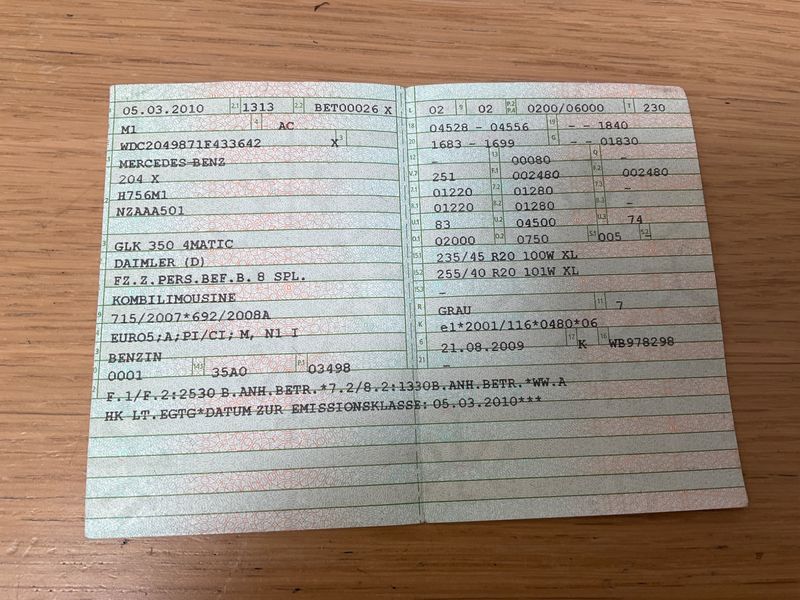 05.03.2010 2.1 1313 2.2 BET00026 X
M1 4 AC
WDC2049871F433642 3 X
MERCEDES-BENZ
204 X
H756M1
NZAAA501
GLK 350 4MATIC
DAIMLER (D)
FZ.Z.PERS.BEF.B. 8 SPL.
KOMBILIMOUSINE
715/2007*692/2008A
EURO5;A;PI/CI; M, N1 I
BENZIN
0001 35A0 P.1 03498
L 02 9 02 P.2 P.4 0200/06000 T 230
18 04528 - 04556 19 - - 1840
20 1683 - 1699 G - - 01830
12 - 13 00080 Q -
V.7 251 F.1 002480 F.2 002480
7.1 01220 7.2 01280 7.3 -
8.1 01220 8.2 01280 8.3 -
U.1 83 U.2 04500 U.3 74
O.1 02000 O.2 0750 S.1 005 S.2 -
15.1 235/45 R20 100W XL
15.2 255/40 R20 101W XL
15.3 -
R GRAU 11 7
K e1*2001/116*0480*06
6 21.08.2009 17 K 16 WB978298
21 -
F.1/F.2:2530 B.ANH.BETR.*7.2/8.2:1330B.ANH.BETR.*WW.A
HK LT.EGTG*DATUM ZUR EMISSIONSKLASSE: 05.03.2010***